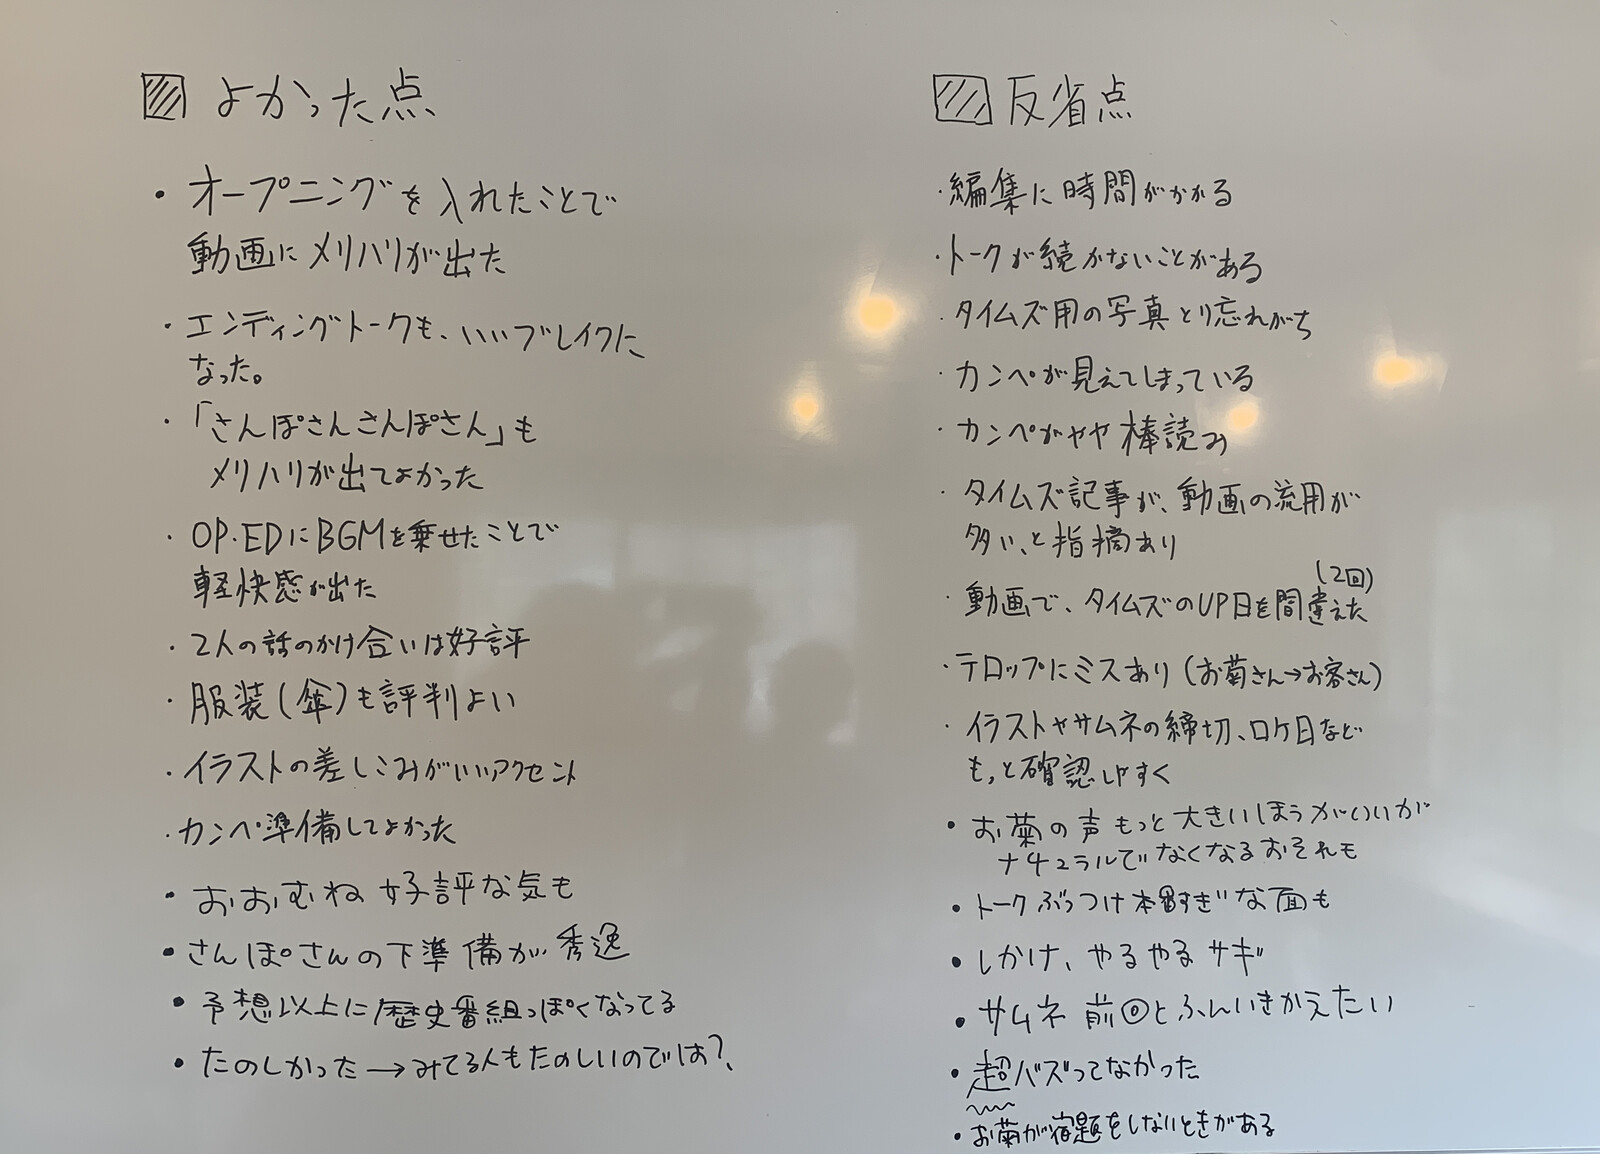 よかった点
・オープニングを入れたことで
動画にメリハリが出た
・エンディングトークも、いいブレイクに
なった。
・「さんぽさんさんぽさん」も
メリハリが出てよかった
・OP・EDにBGMを乗せたことで
軽快感が出た
・2人の話のかけ合いは好評
・服装(傘)も評判よい
・イラストの差しこみがいいアクセント
・カンペ準備してよかった
・おおむね好評な気も
・さんぽさんの下準備が秀逸
・予想以上に歴史番組っぽくなってる
・たのしかった→みてる人もたのしいのでは?、
反省点
・編集に時間がかかる
・トークが続かないことがある
・タイムズ用の写真とり忘れがち
・カンペが見えてしまっている
・カンペがやや棒読み
・タイムズ記事が、動画の流用が
多い、と指摘あり
(2回)
・動画で、タイムズのUP日を間違えた
・テロップにミスあり(お菊さん→お客さん)
・イラストやサムネの締切、ロケ日など
もっと確認しやすく
・お菊の声もっと大きいほうがいいが
ナチュラルでなくなるおそれも
・トークぶっつけ本番すぎな面も
・しかけ、やるやるサギ
・サムネ前回とふんいきかえたい
・超バズってなかった
・お菊が宿題をしないときがある